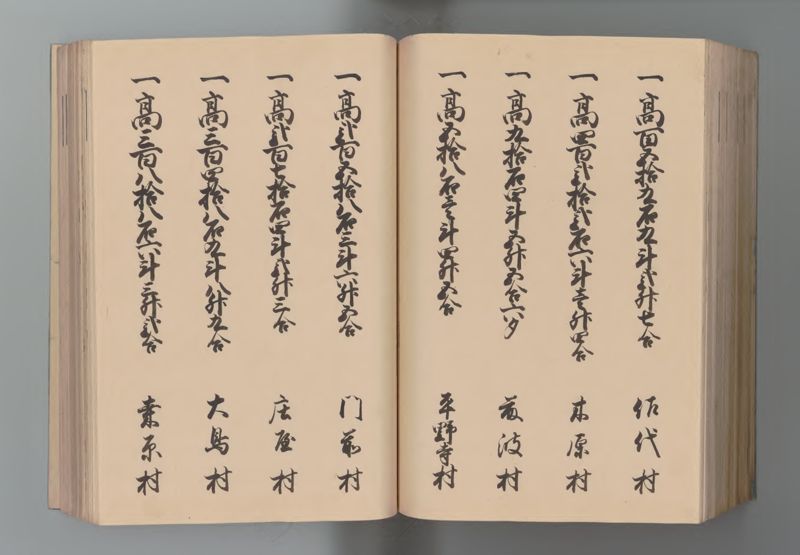 一高百五拾五石五斗弐升七合 佐代村
一高四百弐拾弐石六斗壱升四合 木原村
一高九拾石四斗五升五合六夕 波村
一高五拾八石壱斗四升五合 平野寺村
一高弐百五拾八石三斗六升五合 門前村
一高弐百七拾石四斗弐升三合 庄屋村
一高三百四拾八石九斗八升九合 大鳥村
一高三百八拾八石六斗三升弐合 桑原村